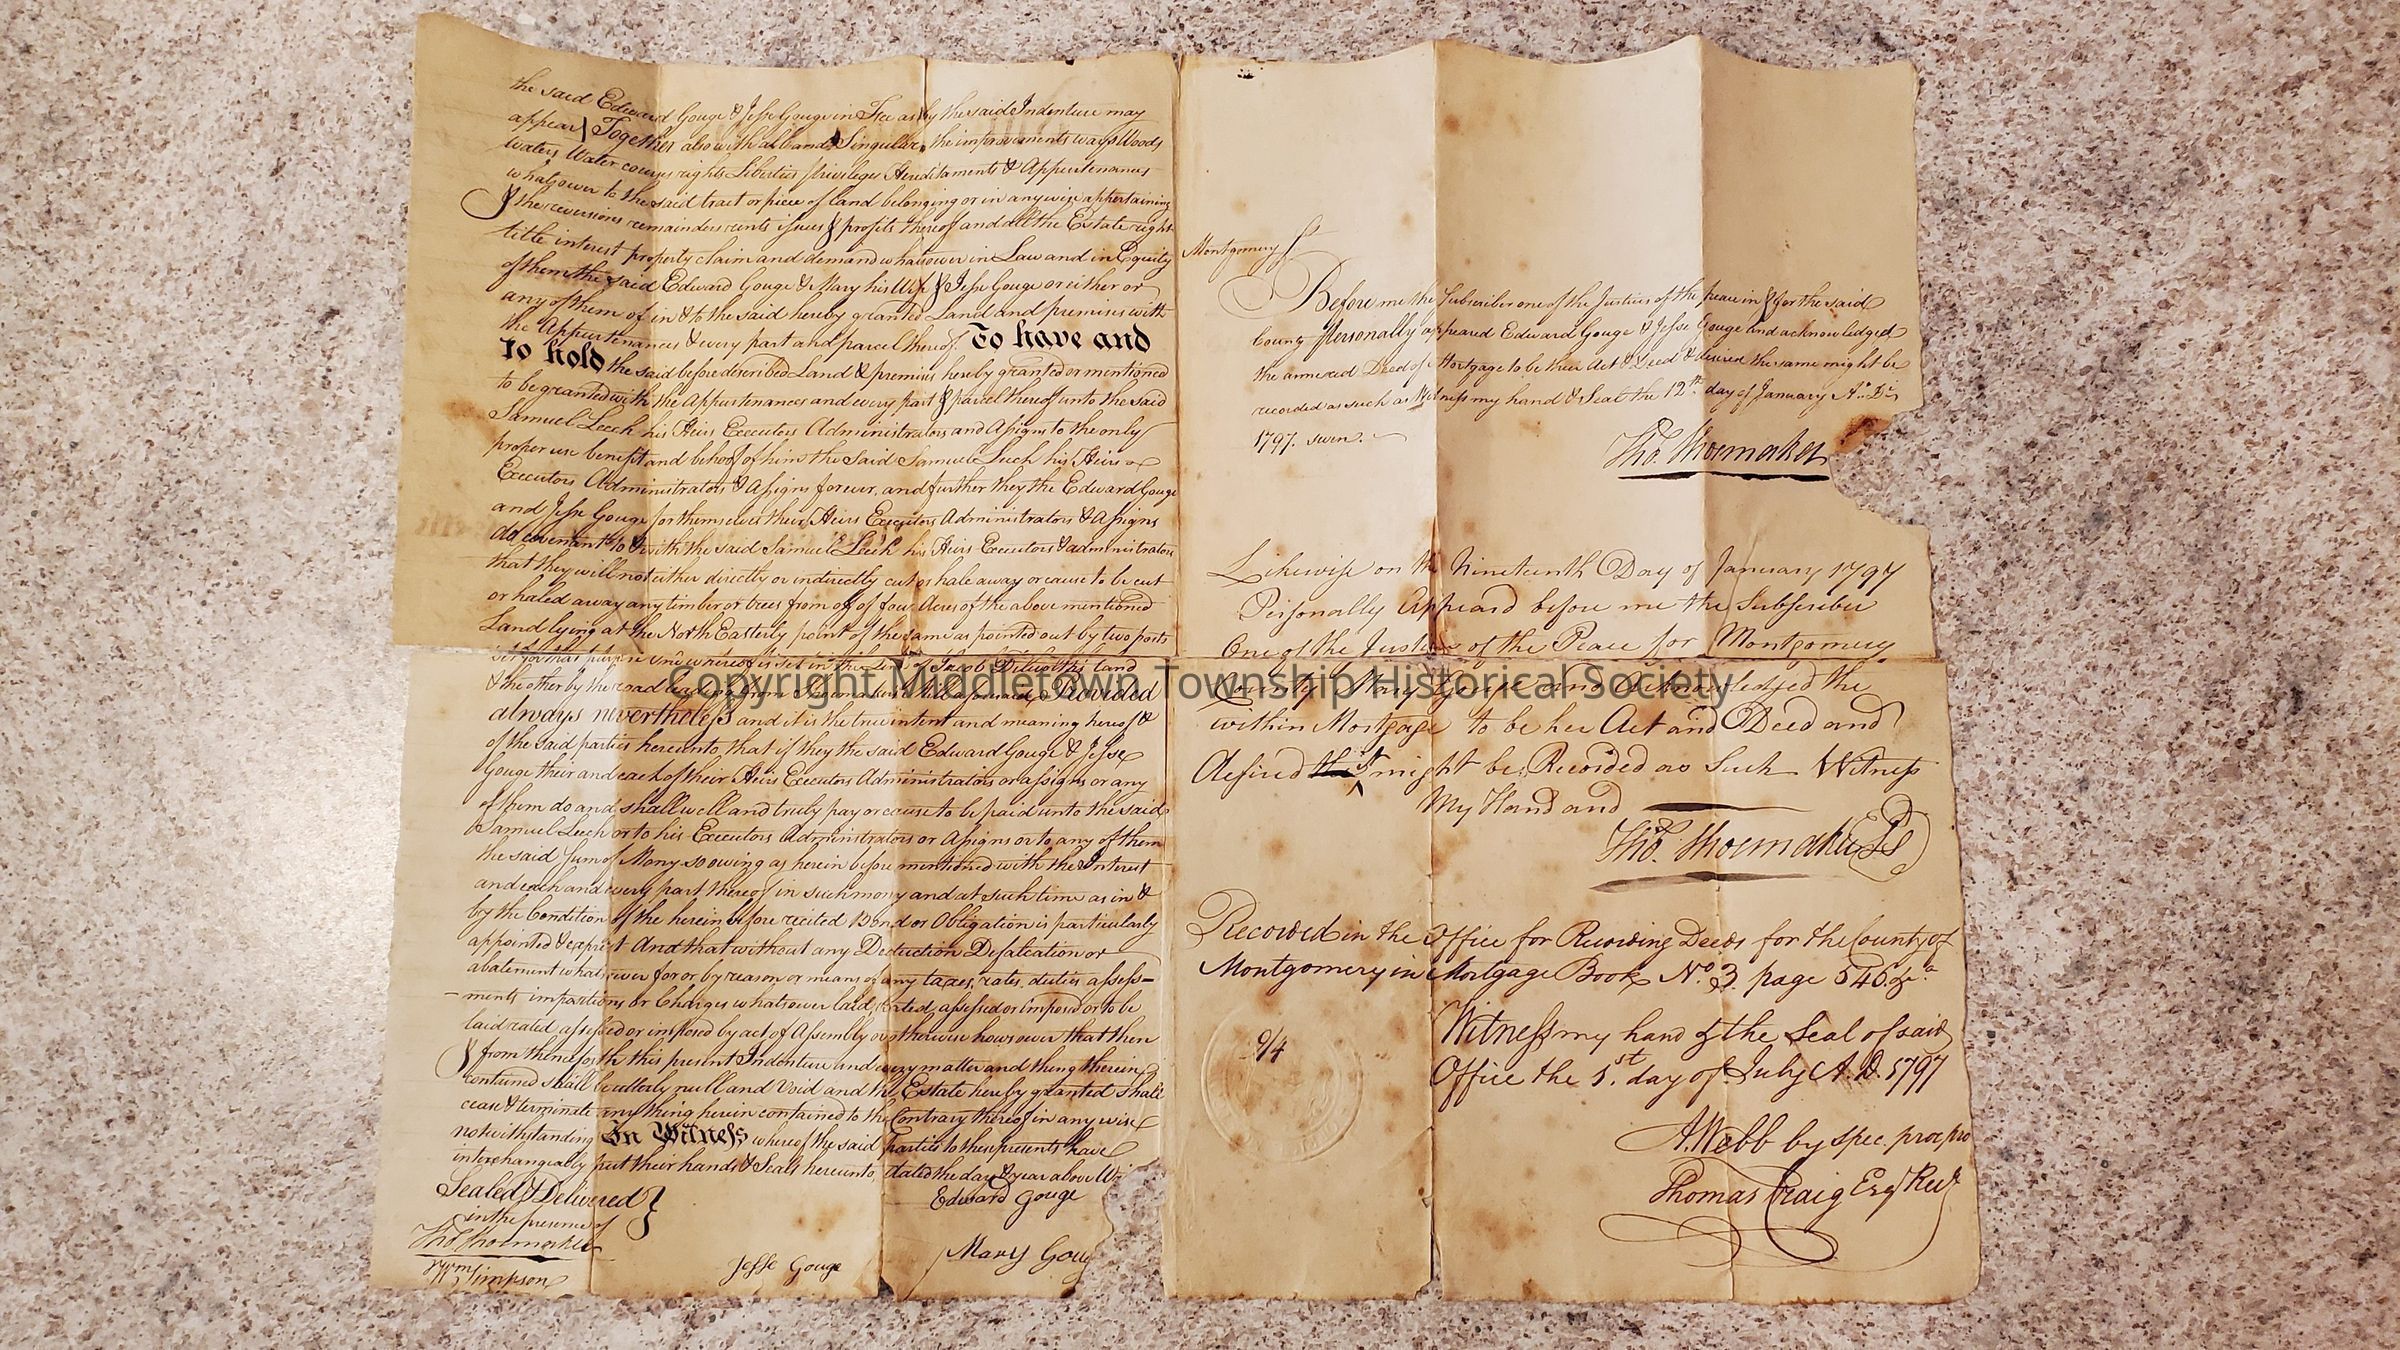 the said Edward Gouge & Jesse Gouge in Fee as by the said Indenture may
appear) Together also with all and Singular the improvements ways Woods
waters Water courses rights Liberties priviledges Hereditaments & Appurtenances
whatsoever to the said tract or piece of Land belonging or in anywise appertaining
& the reversions remainders rents issues & profits thereof and all the Estate right
title interest property claim and demand whatsoever in Law and in Equity
of them the said Edward Gouge & Mary his Wife & Jesse Gouge or either or
any of them of in & to the said hereby granted Land and premises with
the Appurtenances & every part and parcel thereof. To have and
To hold the said before described Land & premises hereby granted or mentioned
to be granted with the Appurtenances and every part & parcel thereof unto the said
Samuel Leech his Heirs Executors Administrators and Assigns to the only
proper use benefit and behoof of him the Said Samuel Leech his Heirs
Executors Administrators & Assigns forever, and further they the Edward Gouge
and Jesse Gouge for themselves their Heirs Executors Administrators & Assigns
do covenant to & with the said Samuel Leech his Heirs Executors & administrators
that they will not either directly or indirectly cut or hale away or cause to be cut
or haled away any timber or trees from off of four Acres of the above mentioned
Land lying at the North Easterly point of the same as pointed out by two posts
set for that purpose one whereof is set in the Line of Jacob Dilworths land
& the other by the road leading from Shoemakers Mill aforesaid Provided
always nevertheless and it is the true intent and meaning hereof &
of the said parties hereunto, that if they the said Edward Gouge & Jesse
Gouge their and each of their Heirs Executors Administrators or assigns or any
of them do and shall well and truly pay or cause to be paid unto the said
Samuel Leech or to his Executors Administrators or Assigns or to any of them
the said sum of Mony so owing as herein before mentioned with the Interest
and each and every part thereof in such mony and at such time as in &
by the Condition of the herein before recited Bond or Obligation is particularly
appointed & exprest And that without any Deduction Defalcation or
abatement whatsoever for or by reason or means of any taxes, rates, duties assess=
ments impositions or Charges whatsoever laid, rated, assessed or imposed or to be
laid rated assessed or imposed by act of Assembly or otherwise howsoever that then
& from thenceforth this present Indenture and every matter and thing therein
contained shall be utterly null and void and the Estate hereby granted shall
cease & terminate any thing herein contained to the Contrary thereof in any wise
notwithstanding In Witness whereof the said parties to these presents have
interchangeably put their hands & Seals hereunto, dated the day & year above
Sealed & Delivered }
in the presence of
Tho. Shoemaker
Wm Simpson
Edward Gouge
Jesse Gouge
Mary Goug
Montgomery Ss.
Before me the Subscriber one of the Justices of the peace in & for the said
County Personally appeared Edward Gouge & Jesse Gouge and acknowledged
the annexed Deed of Mortgage to be their Act & Deed & desired the same might be
recorded as such as Witness my hand & Seal the 12th day of January A.o D.i
1797.
Tho. Shoemaker
Likewise on the Nineteenth Day of January 1797
Personally Appeard before me the Subscriber
One of the Justices of the Peace for Montgomery
County Mary Gouge and Acknowledged the
within Mortgage to be her Act and Deed and
desired it might be Recorded as Such Witness
My Hand and
Tho. Shoemaker
Recorded in the Office for Recording Deeds for the County of
Montgomery in Mortgage Book No. 3. page 545. &c.a
9/4
Witness my hand & the Seal of said
Office the 1st. day of July A.D. 1797
A. Webb by spec. proc pro
Thomas Craig Esqr Recr
Copyright Middletown Township Historical Society